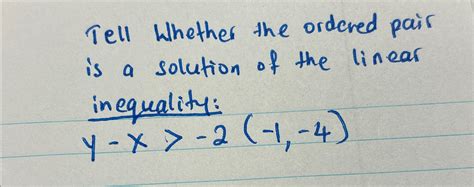 Tell Whether the ordered pair
is a solution of the linear
inequality:
y - x > -2 (-1, -4)